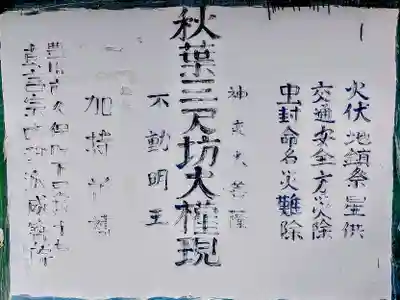 火伏地鎮祭星供
交通安全方災除
虫封命名災難除
神変大菩薩
秋葉三尺坊大権現
不動明王
加持祈祷